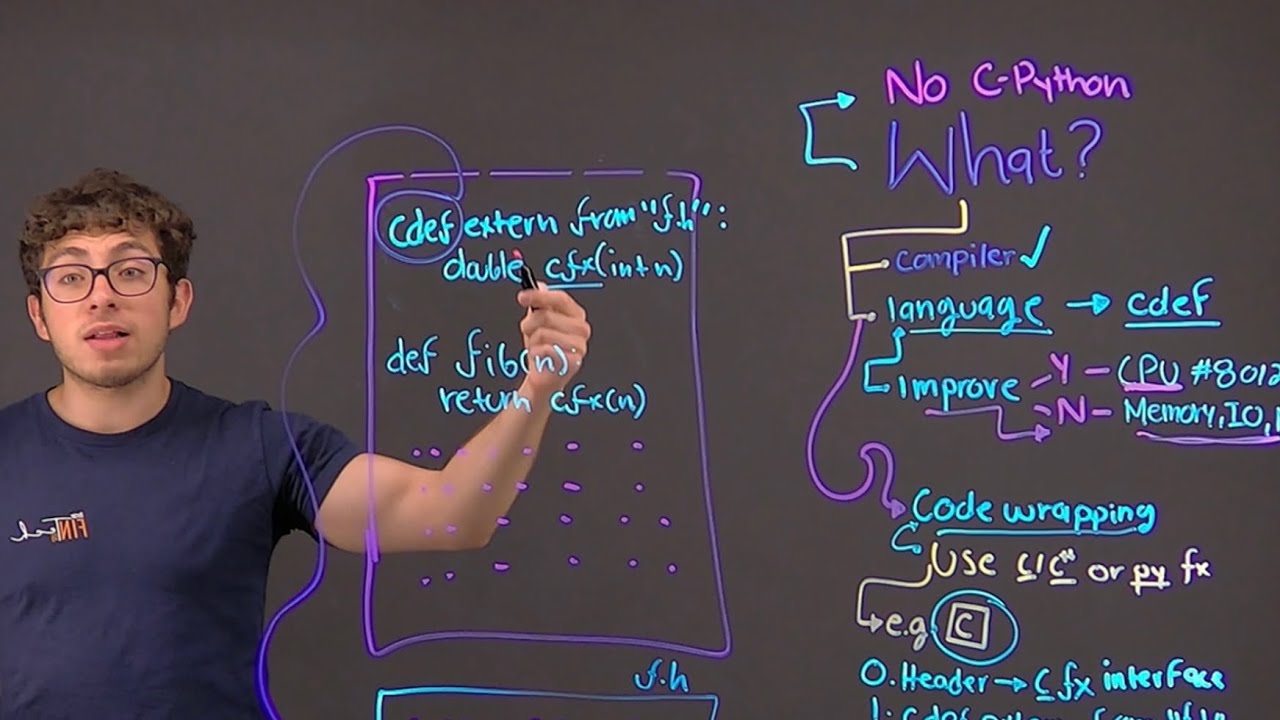 No C-Python
What?
cdef extern from "f.h":
double cfx(int n)
def fib(n):
return cfx(n)
f.h
compiler ✓
language → cdef
Improve
Y - CPU #8012
N - Memory, IO,
Code wrapping
Use C/C or py fx
e.g C
0. Header → C fx interface
1. cdef extern from "f.h"
FINTech